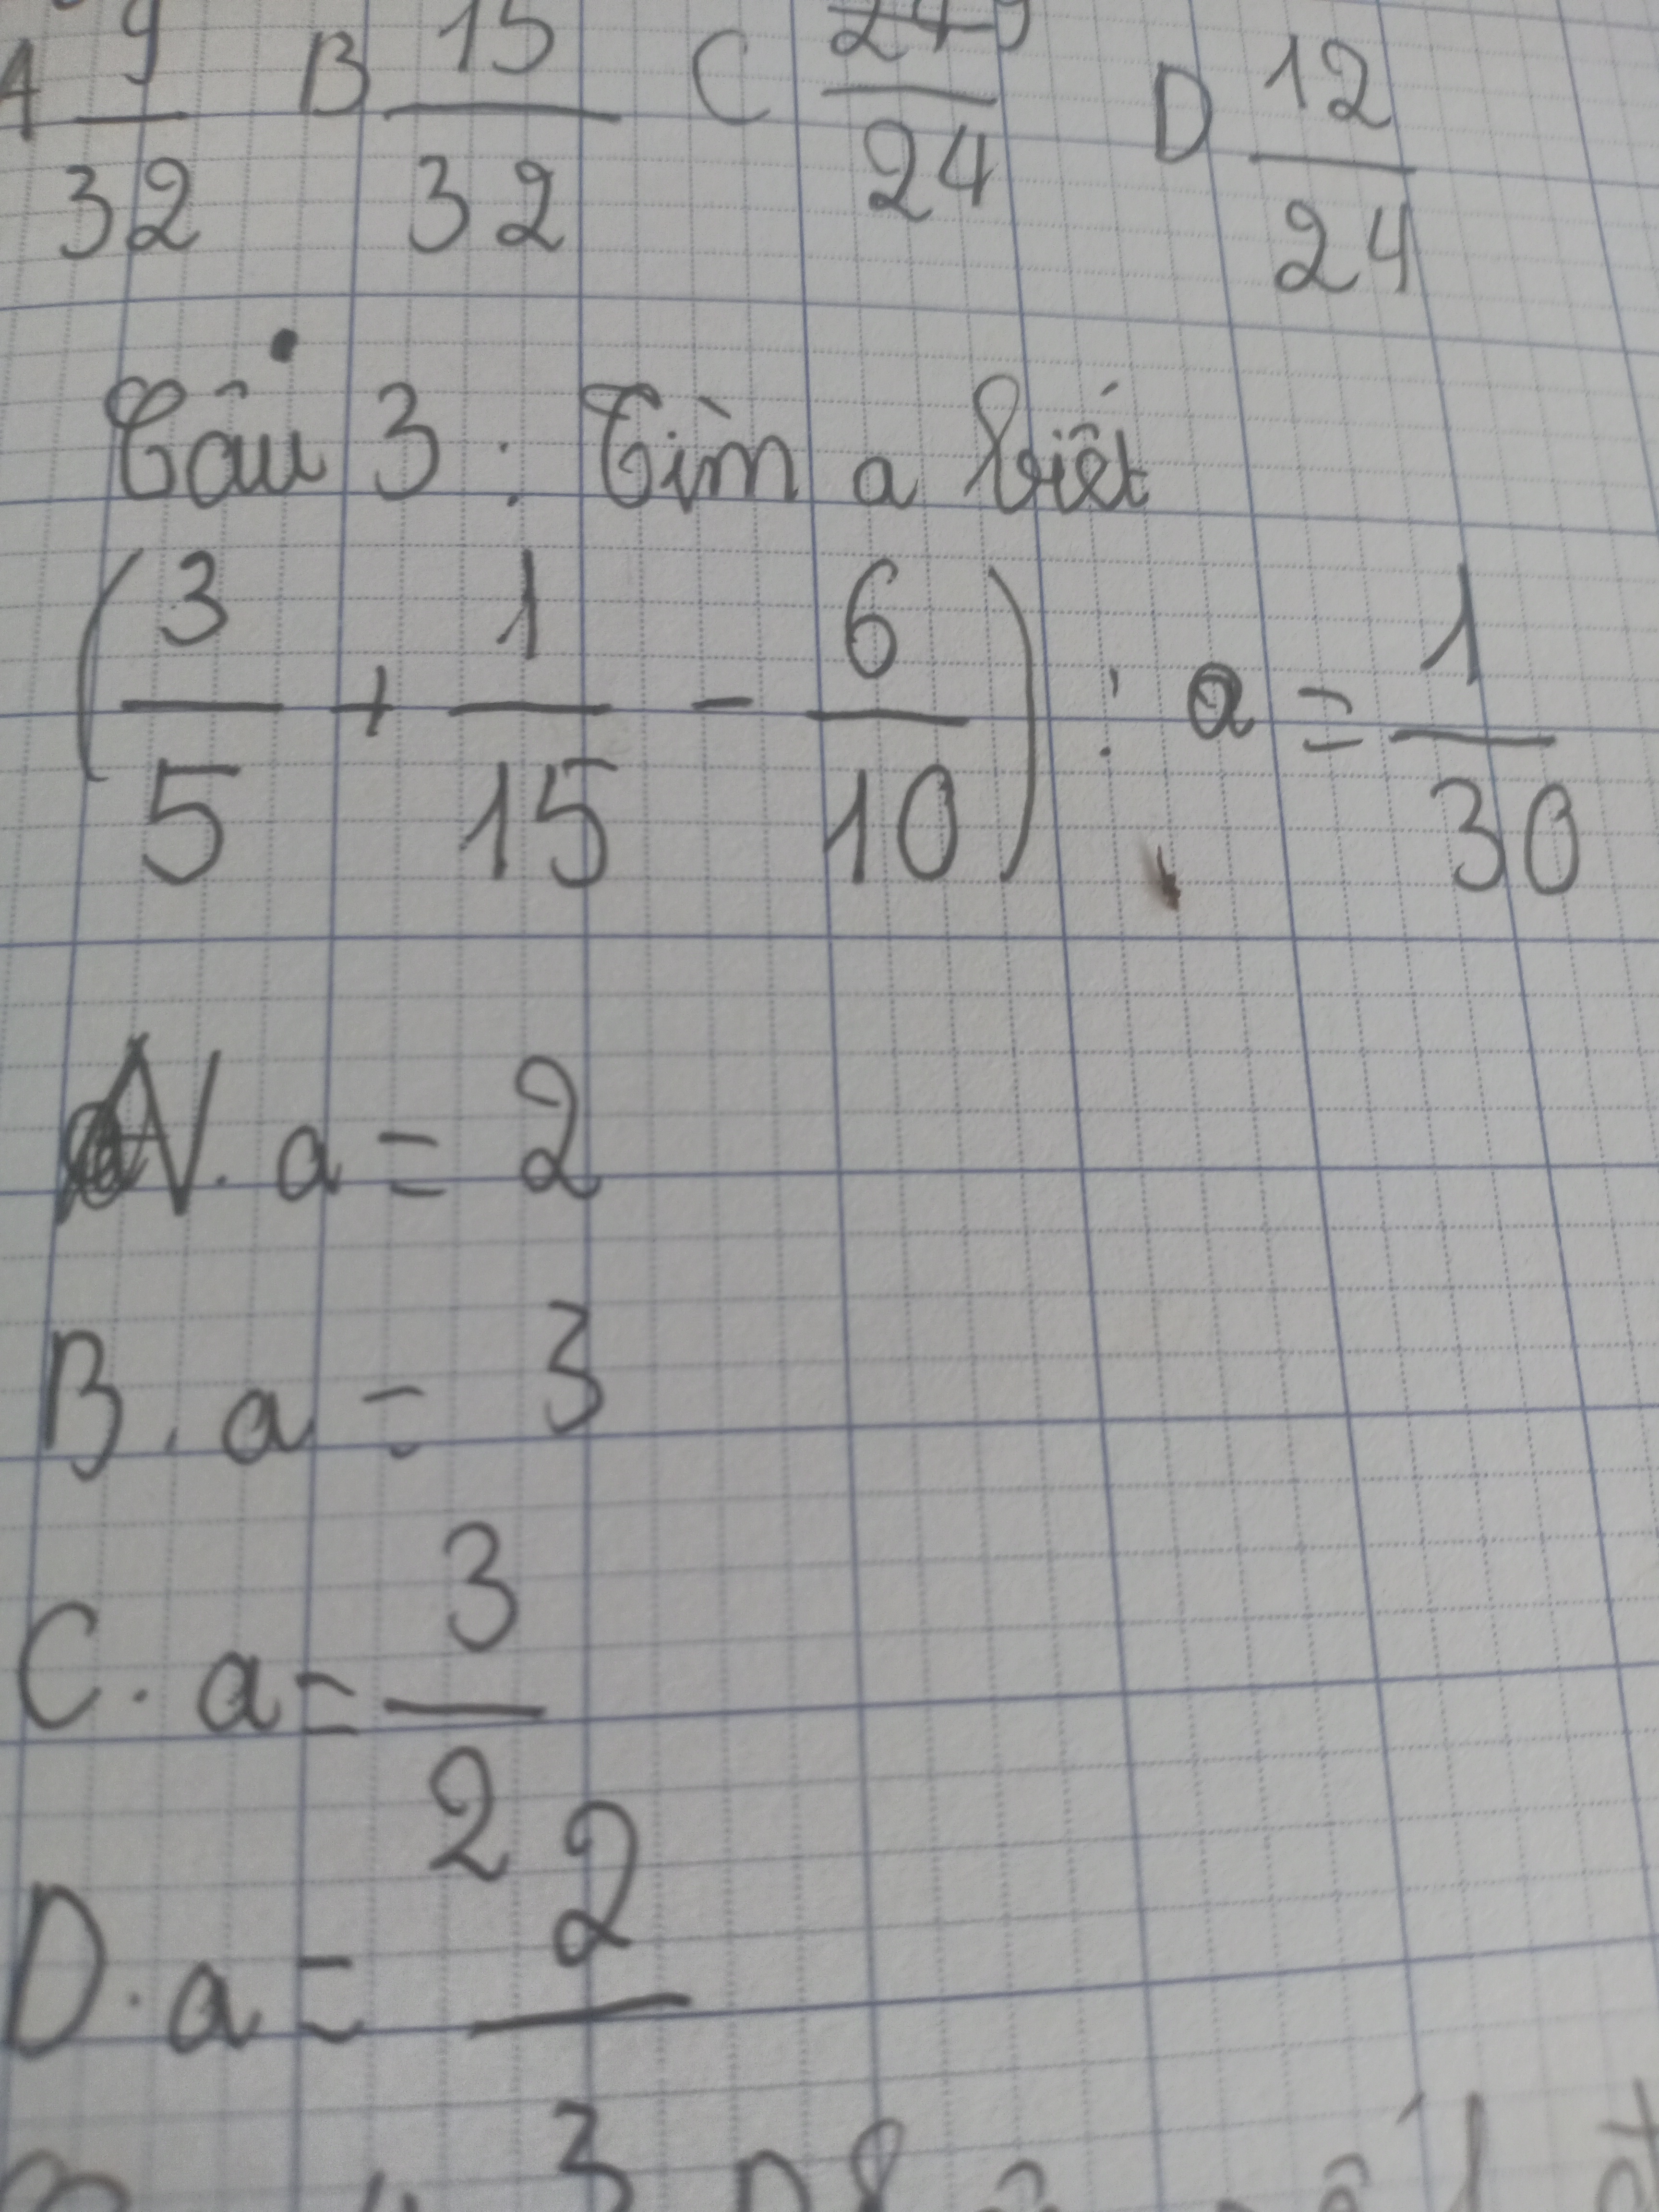 A 9/32 B 15/32 C 24/24 D 12/24
Câu 3: Tìm a biết
(3/5 + 1/15 - 6/10) : a = 1/30
A. a = 2
B. a = 3
C. a = 3/2
D. a = 2/3